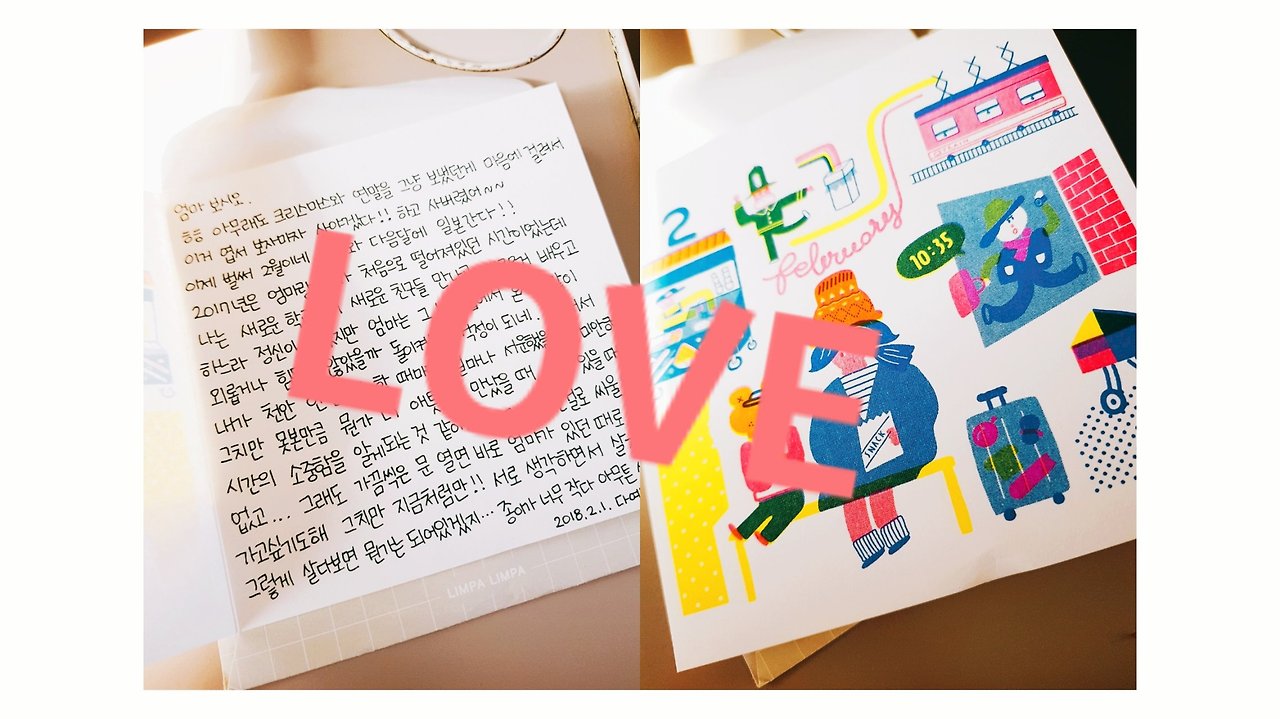 엄마 보시오.
흠흠 아무래도 크리스마스와 연말을 그냥 보냈던게 마음에 걸려서
이거 엽서 보자마자 사야겠다!! 하고 사버렸어~~
이제 벌써 2월이네 다음달에 일본간다!!
2017년은 엄마랑 처음으로 떨어져있던 시간이었는데
나는 새로운 새로운 친구들 만나고 배우고
하느라 정신이 엄마는 그
외롭거나 힘 않았을까 걱정이 되네.
내가 천안 할 때마 얼마나 서운했을
그치만 못본만큼 뭔가 더 애틋 만났을 때 있을 때
시간의 소중함을 알게되는 것 같아 싸울
없고... 그래도 가끔씩은 문 열면 바로 엄마가 있던 때로
가고싶기도해 그치만 지금처럼만!! 서로 생각하면서 살
그렇게 살다보면 뭔가는 되어있겠지... 종이가 너무 작다 아무튼
2018.2.1.
LIMPA LIMPA
LOVE
2
february
10:35
SNACK